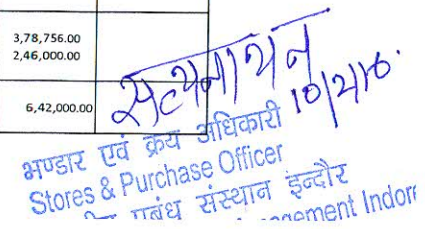 3,78,756.00
2,46,000.00
6,42,000.00
सत्यनारायन
10/2/16.
भण्डार एवं क्रय अधिकारी
Stores & Purchase Officer
प्रबंध संस्थान इन्दौर
Management Indore